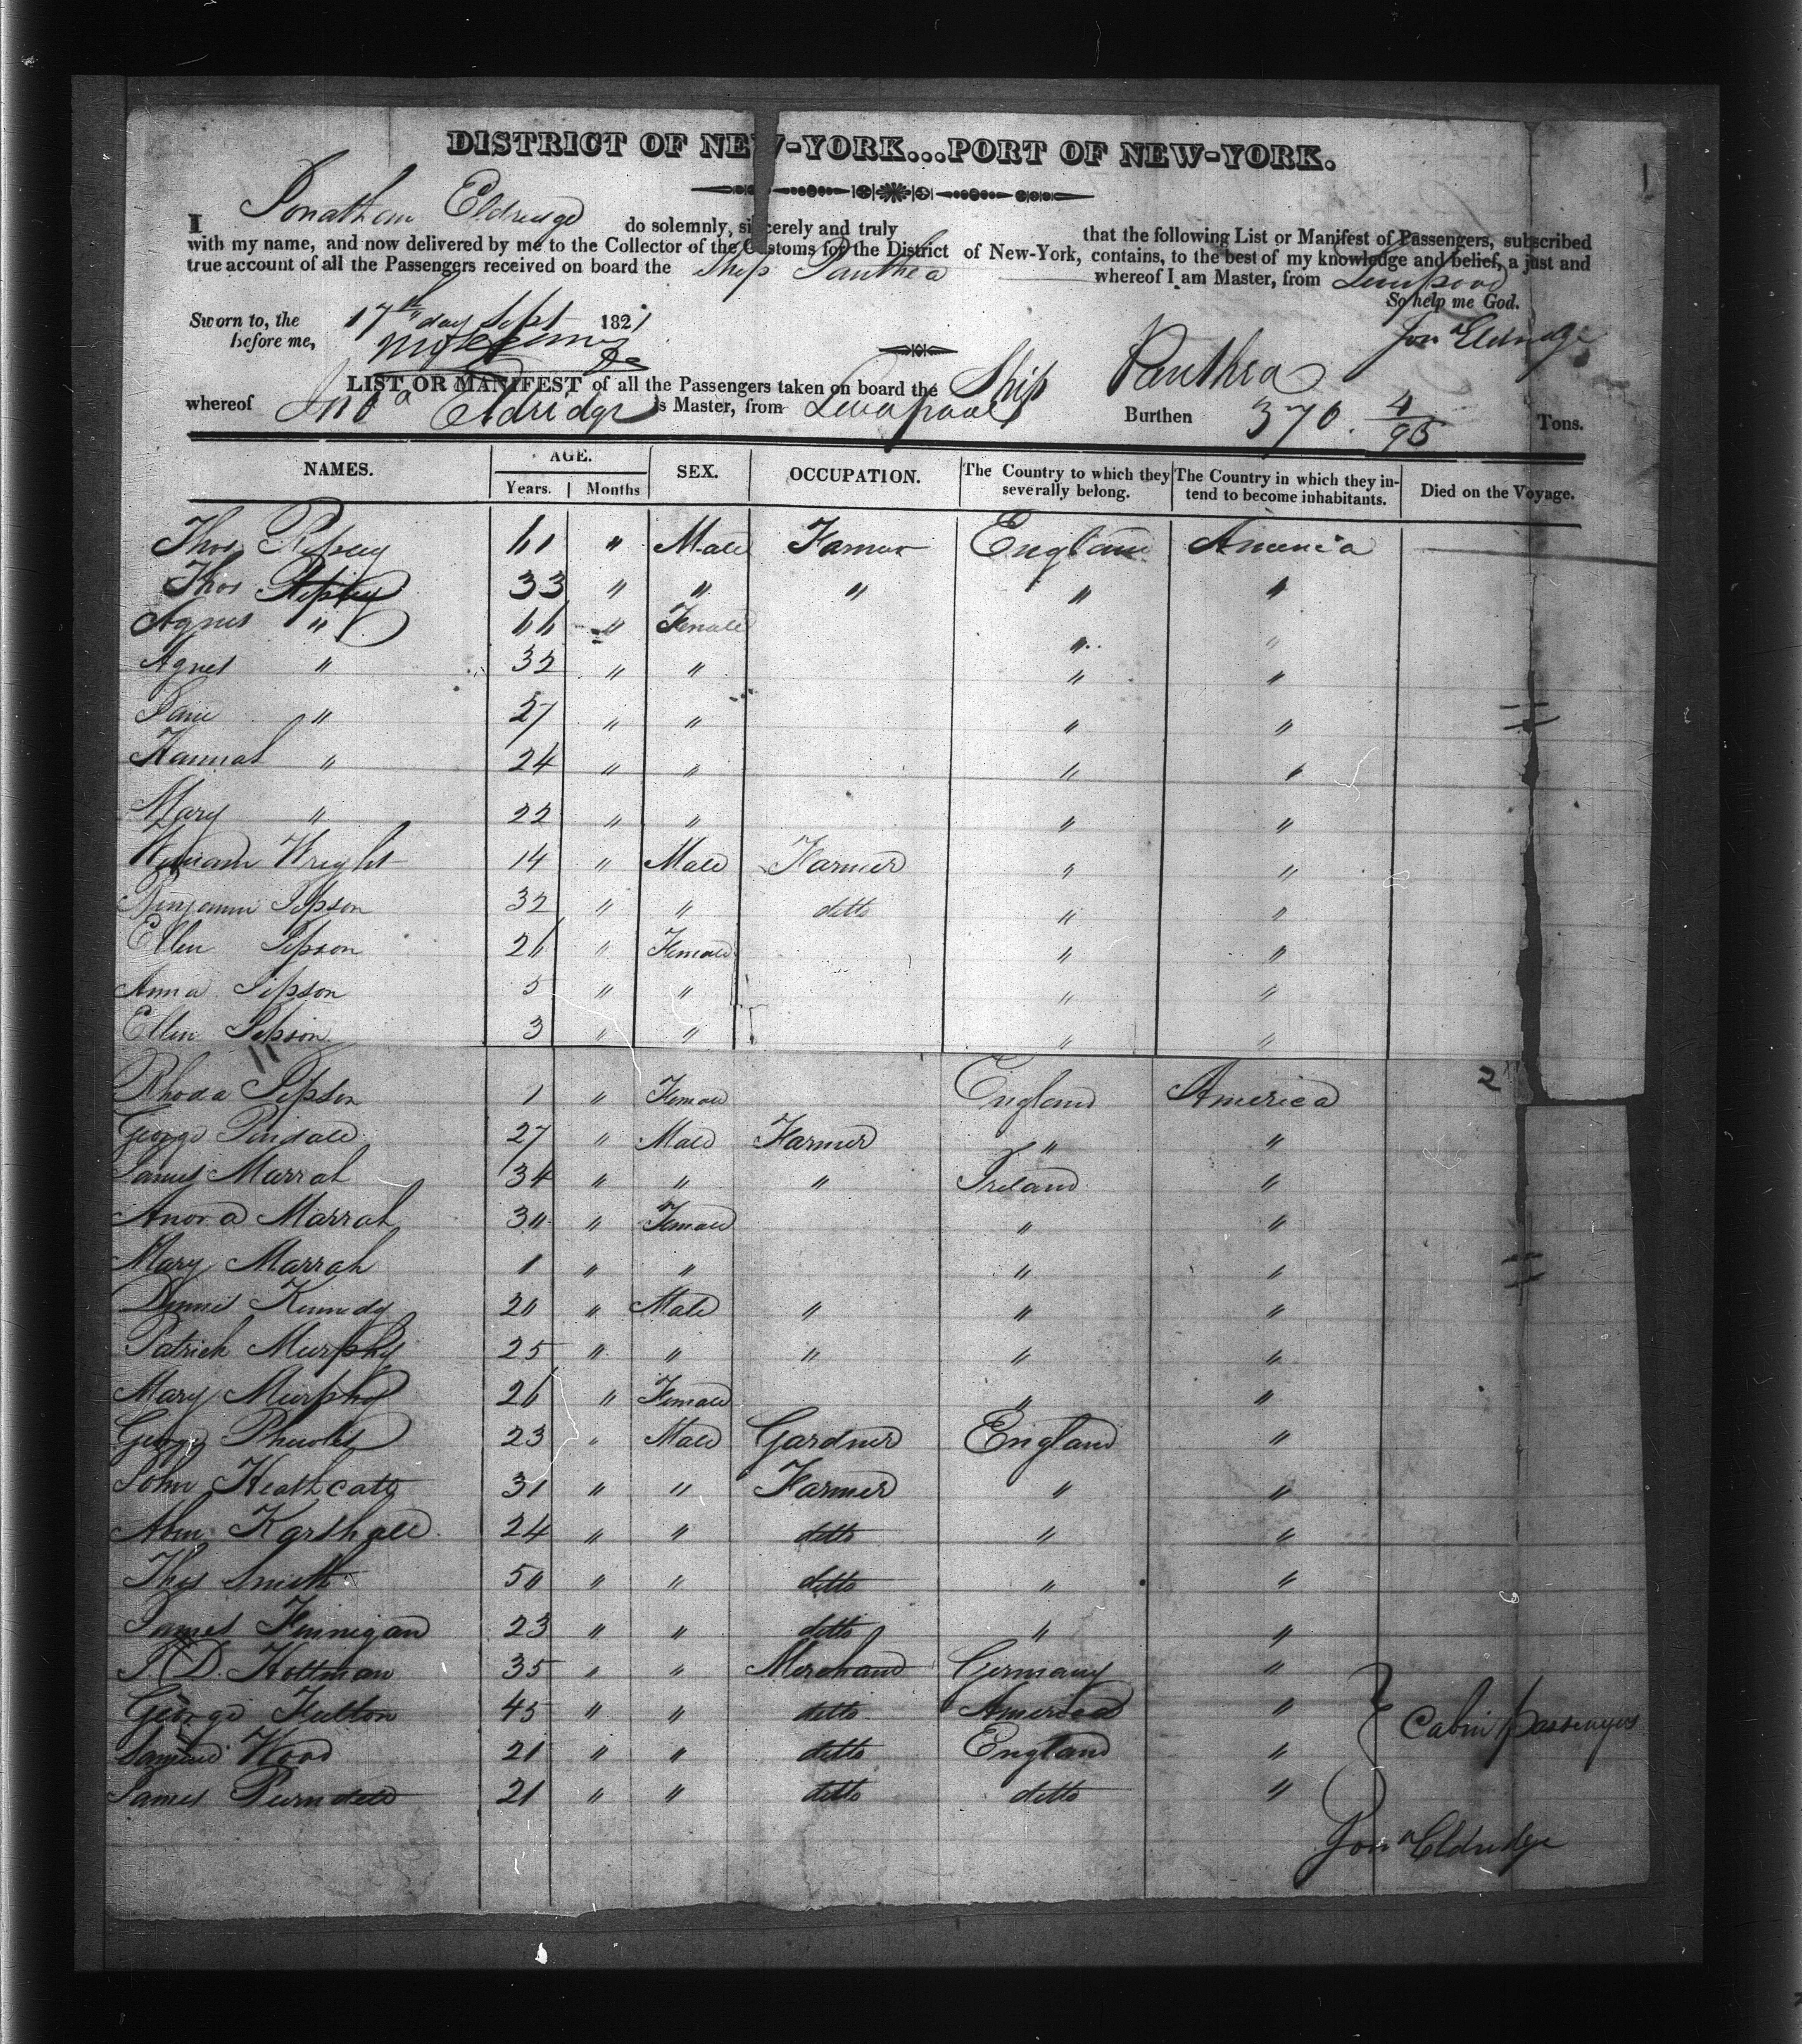 DISTRICT OF NEW-YORK...PORT OF NEW-YORK.
I Jonathan Eldridge do solemnly, sincerely and truly that the following List or Manifest of Passengers, subscribed
with my name, and now delivered by me to the Collector of the Customs for the District of New-York, contains, to the best of my knowledge and belief, a just and
true account of all the Passengers received on board the Ship Panthea whereof I am Master, from Liverpool
So help me God.
Sworn to, the 17th day Sept 1821
before me,
Jona Eldridge
LIST OR MANIFEST of all the Passengers taken on board the Ship Panthea
whereof Jona Eldridge is Master, from Liverpool Burthen 370. 4/95 Tons.
NAMES. AGE. Years. Months SEX. OCCUPATION. The Country to which they severally belong. The Country in which they intend to become inhabitants. Died on the Voyage.
Thos Ripley 61 " Male Farmer England America
Thos Ripley 33 " " " " "
Agnes " 66 " Female " "
Agnes " 32 " " " "
Jane " 27 " " " "
Hannah " 24 " " " "
Mary " 22 " " " "
William Wright 14 " Male Farmer " "
Benjamin Jepson 32 " " ditto " "
Ellen Jepson 26 " Female " "
Anna Jepson 5 " " " "
Ellen Jepson 3 " " " "
Rhoda Jepson 1 " Female England America 2
George Tindale 27 " Male Farmer " "
James Marrah 34 " " " Ireland "
Anora Marrah 30 " Female " "
Mary Marrah 1 " " " "
Dennis Kennedy 20 " Male " " "
Patrick Murphy 25 " " " " "
Mary Murphy 26 " Female " "
George 23 " Male Gardner England "
John Heathcote 31 " " Farmer " "
Abm 24 " " ditto " "
Thos Smith 50 " " ditto " "
James Finnigan 23 " " ditto " "
Hottman 35 " " Merchand Germany "
George Fulton 45 " " ditto America "
Samuel Wood 21 " " ditto England " Cabin passengers
James 21 " " ditto ditto "
Jona Eldridge